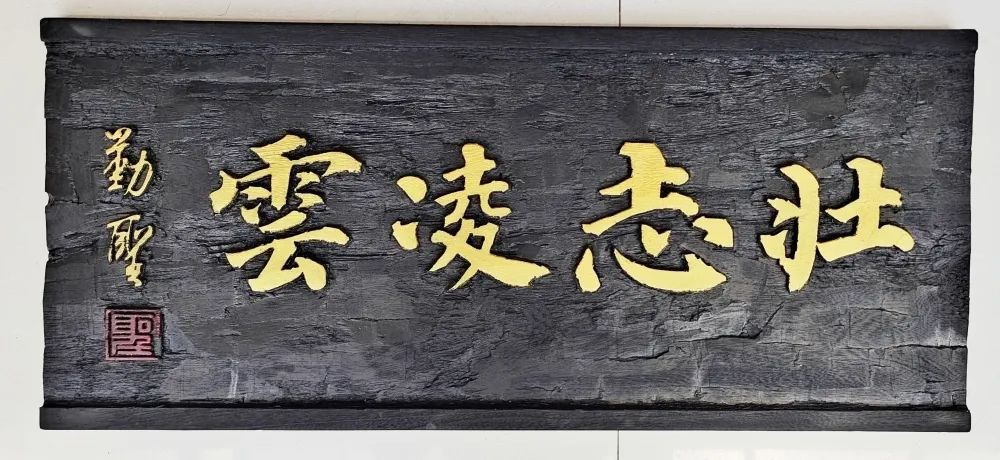 壯志凌雲
勤聖
聖